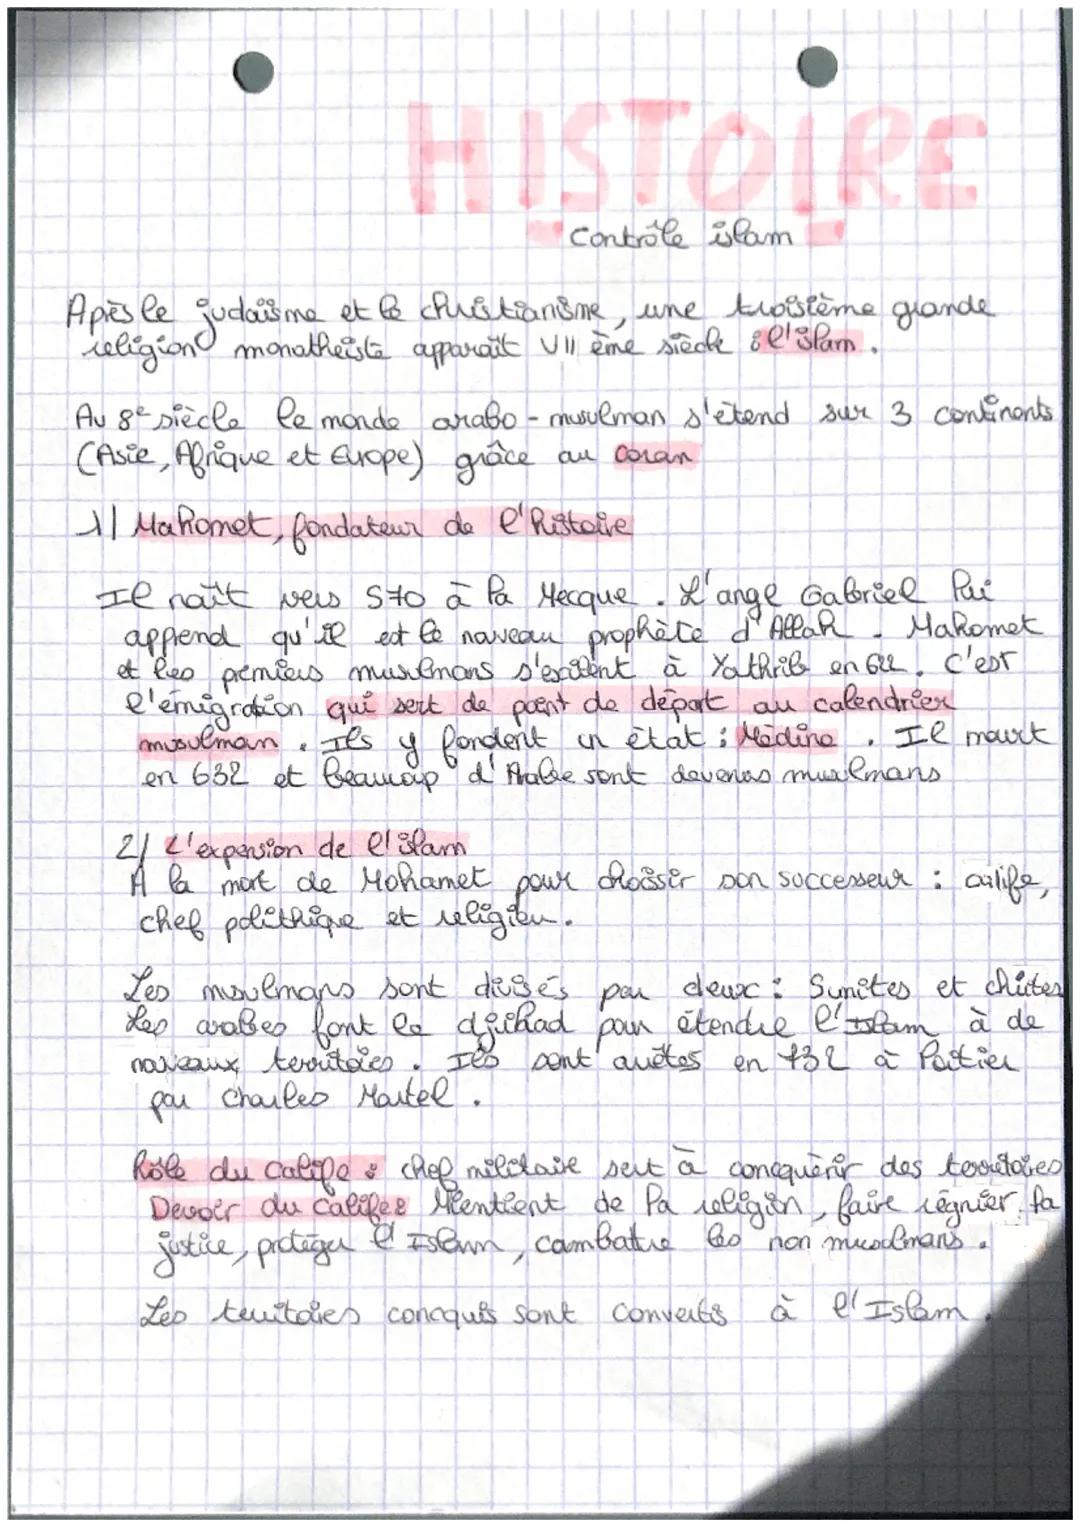 HISTOIRE
Contrôle islam
Après le judaïsme et le christianisme, une troisième grande
religion monatheiste apparaît VII ème siècle : l'islam.
Au 8e siècle le monde arabo-musulman s'étend sur 3 continents
(Asie, Afrique et Europe) grâce au Coran
1/ Mahomet, fondateur de l'histoire
Il naît vers 570 à la Mecque. L'ange Gabriel lui
apprend qu'il est le nouveau prophète d'Allah. Mahomet
et les premiers musulmans s'exilent à Yathrib en 622. C'est
l'émigration qui sert de point de départ au calendrier
musulman. Ils y fondent un état : Médine. Il meurt
en 632 et beaucoup d'Arabe sont devenus musulmans
2/ L'expension de l'islam
À la mort de Mohamet pour choissir son successeur : calife,
chef polithique et religieu.
Les musulmans sont divisés par deux : Sunites et chiites
Les arabes font le djihad pour étendre l'Islam à de
nouveaux territoires. Ils sont arrêtes en 732 à Poitier
par Charles Martel.
Rôle du Calife : chef militaire sert à concquérir des territoires
Devoir du Califes Mientient de la religion, faire régnier la
justice, protéger l'Islam, combatre les non musulmans.
Les territoires concquis sont convertis à l'Islam.